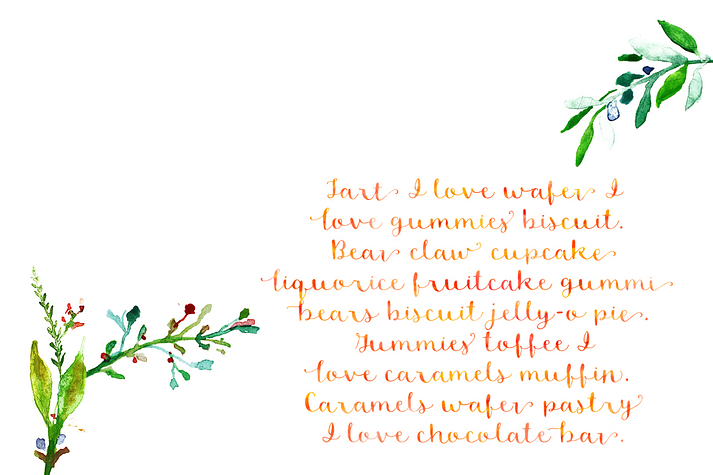 Tart I love wafer I
love gummies biscuit.
Bear claw cupcake
liquorice fruitcake gummi
bears biscuit jelly-o pie.
Gummies toffee I
love caramels muffin.
Caramels wafer pastry
I love chocolate bar.